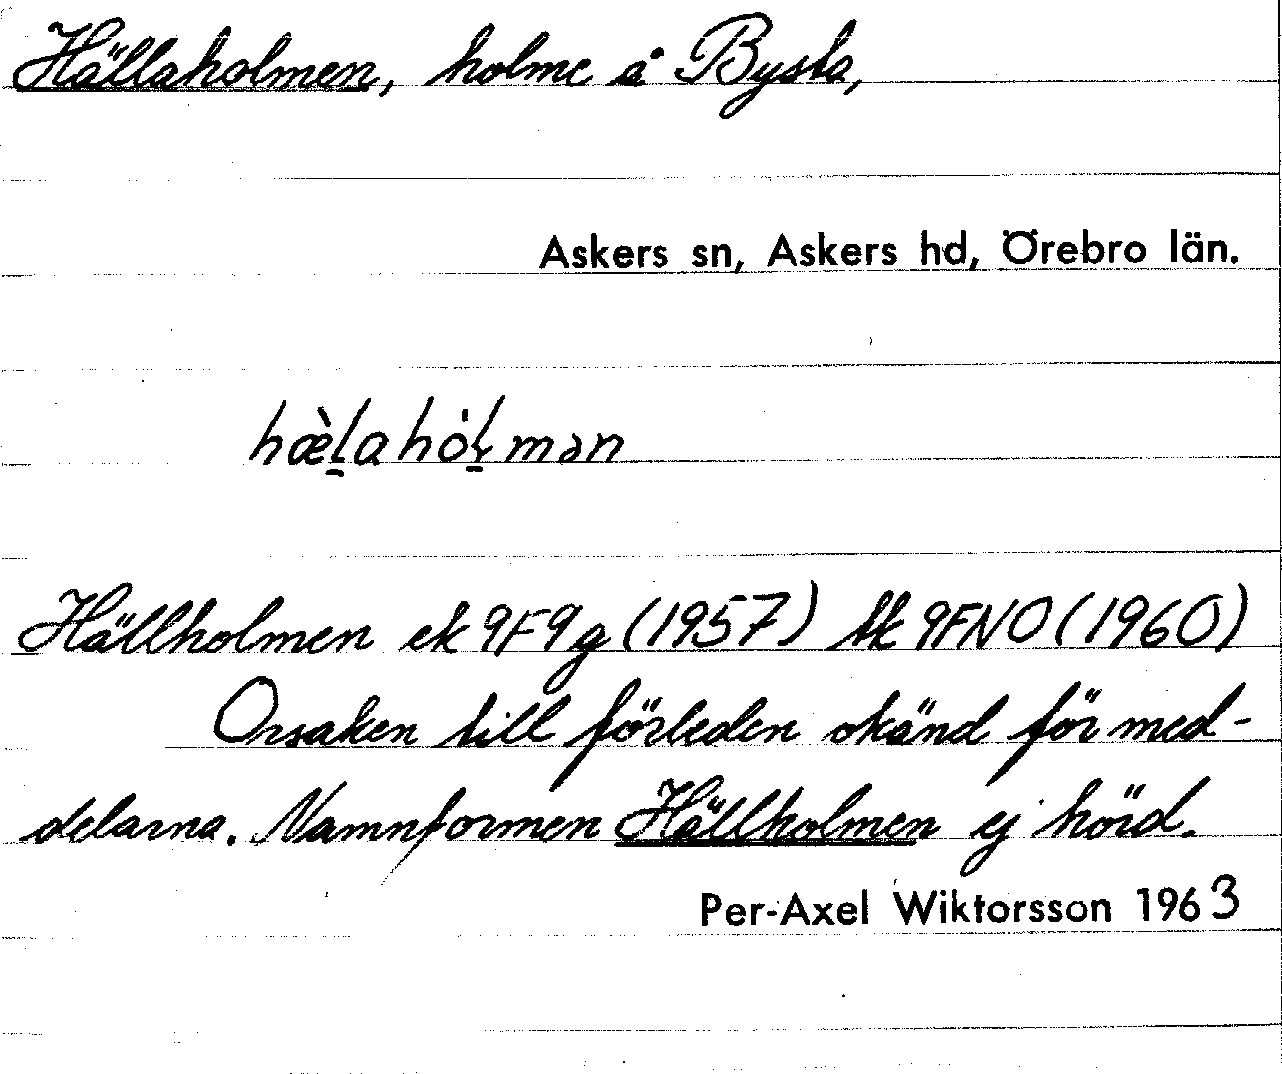 Hällaholmen, holme å Bysta,
Askers sn, Askers hd, Örebro län.
hæ̀l̠ahól̠mən
Hällholmen ek 9F9g (1957) tk 9FNO (1960)
Orsaken till förleden okänd för med-
delarna. Namnformen Hällholmen ej hörd.
Per-Axel Wiktorsson 1963